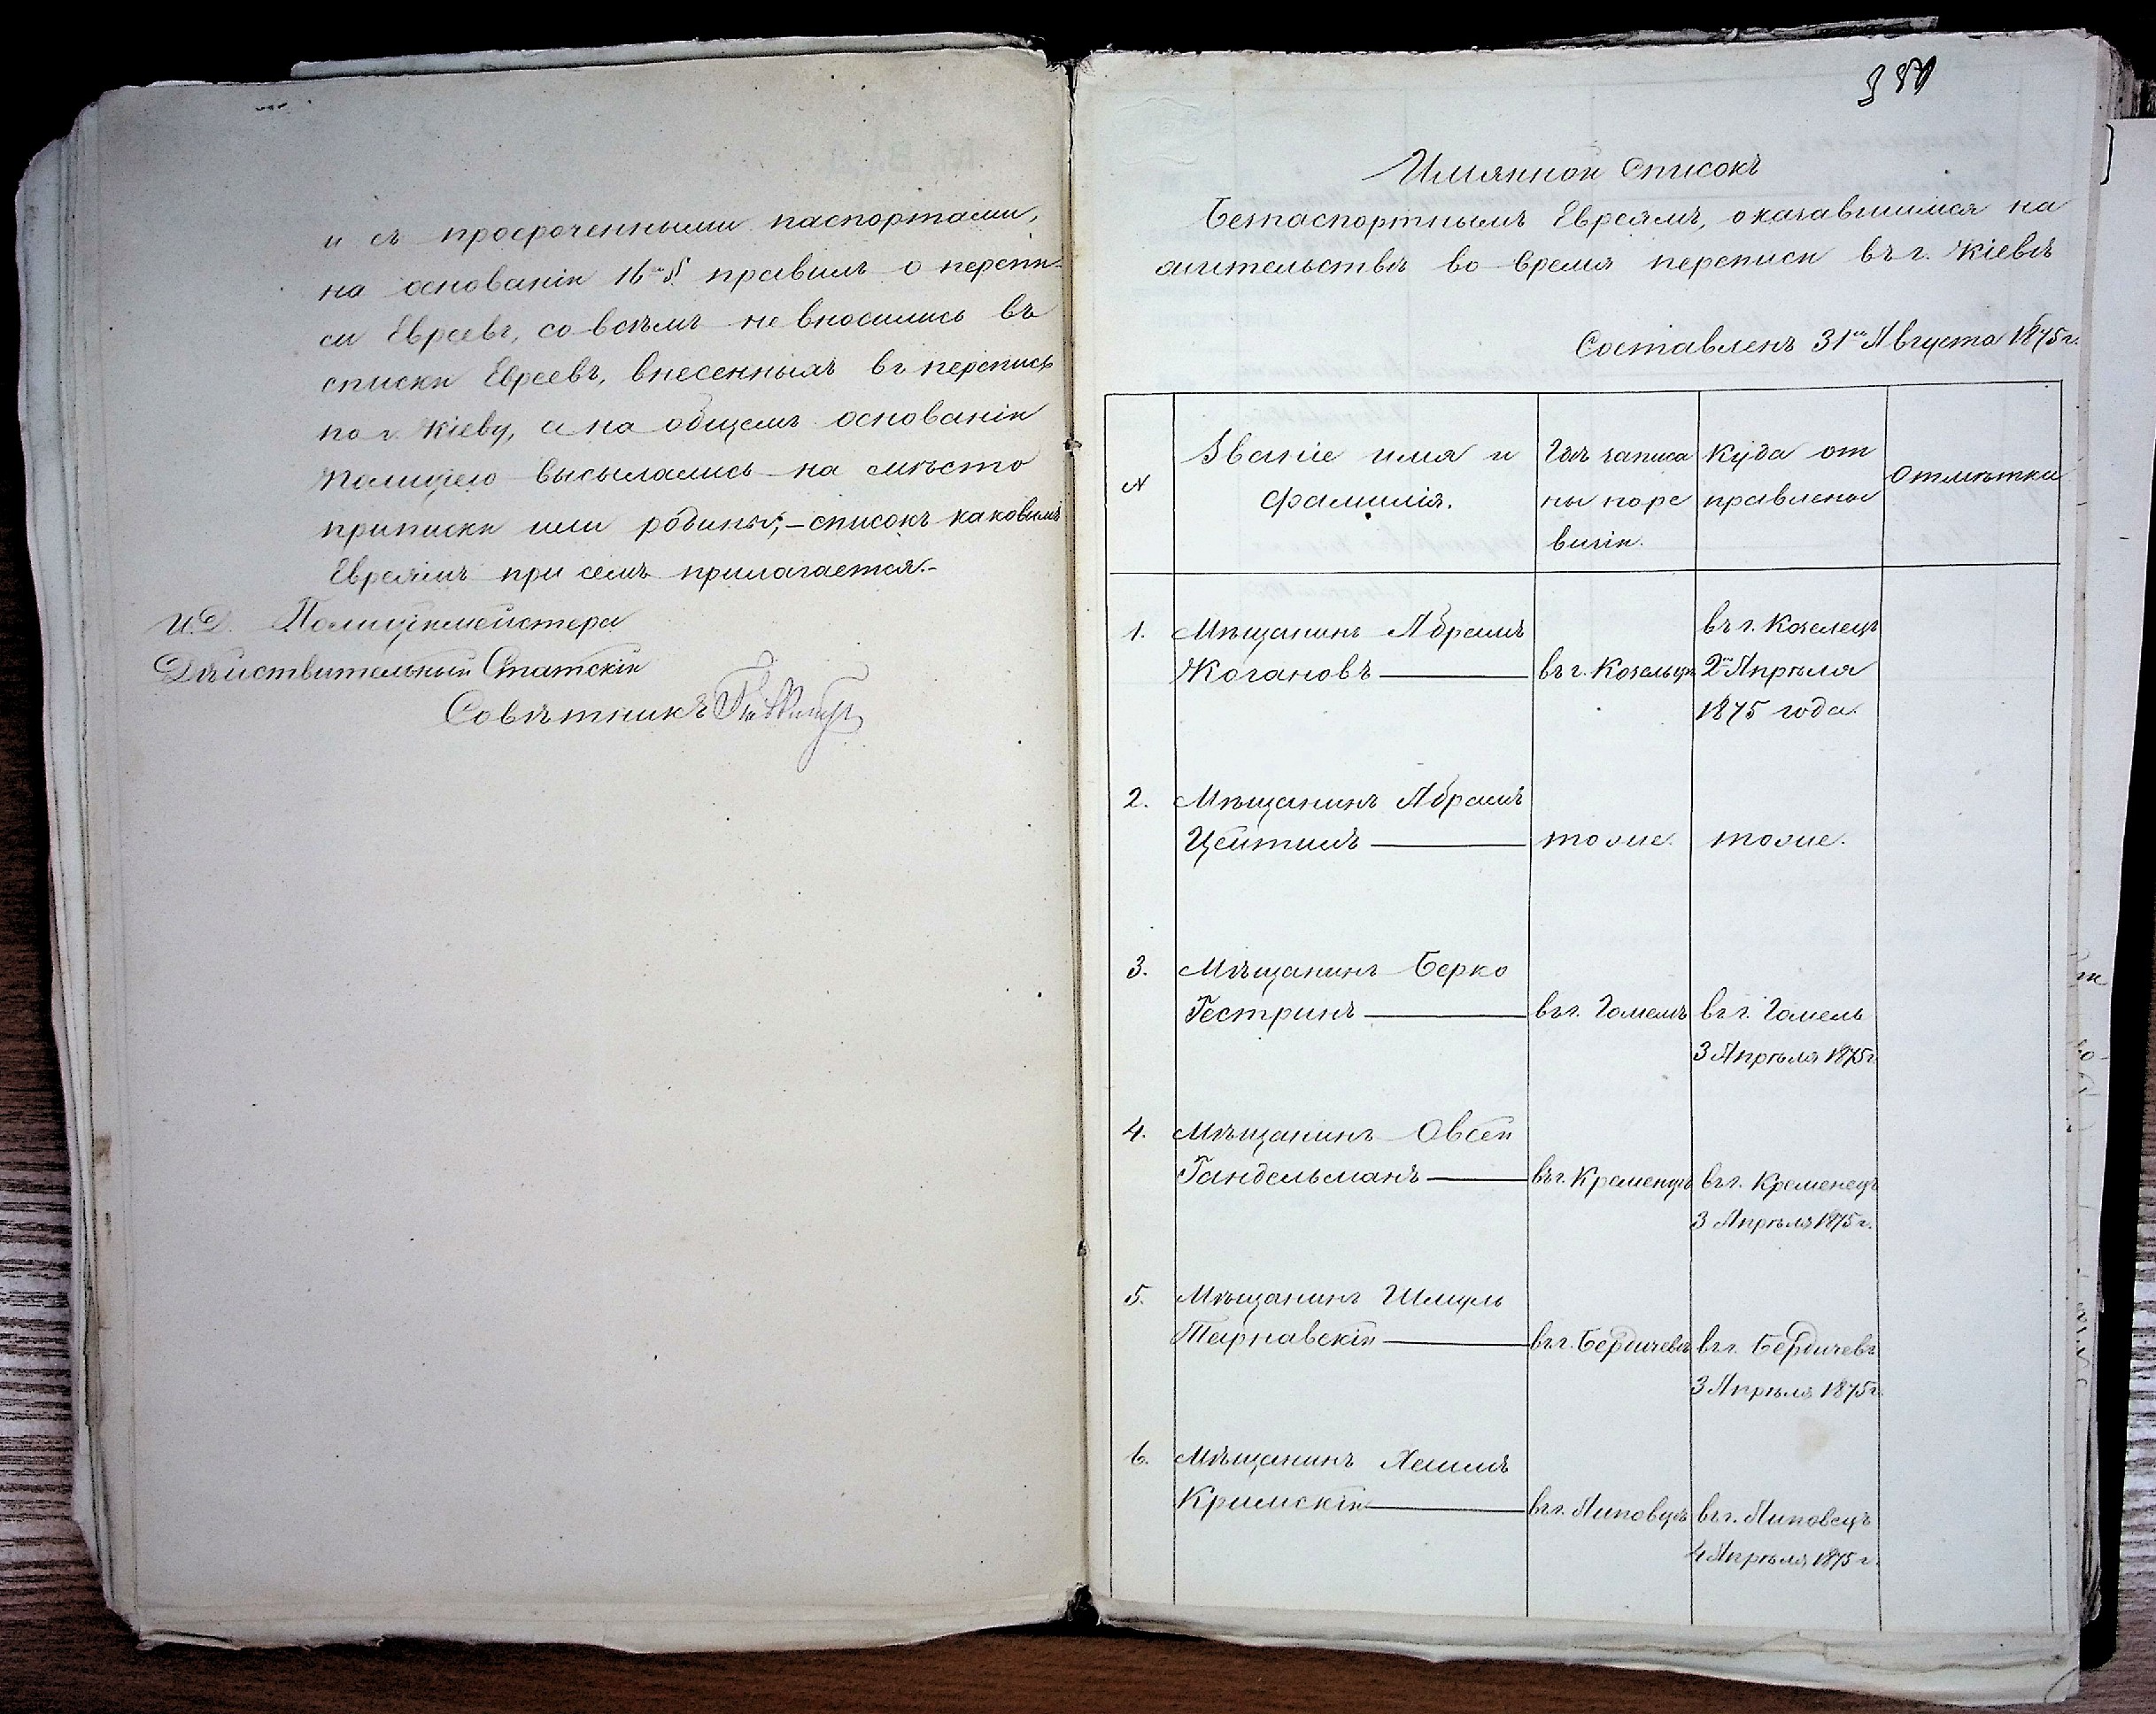 и съ просроченными паспортами,
на основаніи 16го § правилъ о перепи-
си Евреевъ, со всѣмъ не вносились въ
списки Евреевъ, внесенныхъ въ перепись
по г. Кіеву, а на общемъ основаніи
Полиціею высылались на мѣсто
приписки или родины; – списокъ каковымъ
Евреямъ при семъ прилагается.-
И.Д. Полиціймейстера
Дѣйствительный Статскій
Совѣтникъ
380
Имянной списокъ
Безпаспортнымъ Евреямъ, оказавшимся на
жительствѣ во время переписи въ г. Кіевѣ
Составленъ 31го Августа 1875 г.
№
Званіе имя и
фамилія.
Гдѣ записа
ны поре
визіи.
Куда от
правлены
Отмѣтки
1. Мѣщанинъ Абрамъ въ г. Козелецъ
Когановъ — въ г. Козельцѣ 2го Апрѣля
1875 года.
2. Мѣщанинъ Абрамъ
Цейтлинъ — тоже. тоже.
3. Мѣщанинъ Берко
Гестринъ — въ г. Гомелѣ въ г. Гомель
3 Апрѣля 1875 г.
4. Мѣщанинъ Овсей
Гандельманъ — въ г. Кременцѣ въ г. Кременецъ
3 Апрѣля 1875 г.
5. Мѣщанинъ Шмуль
Тарнавскій — въ г. Бердичевѣ въ г. Бердичевъ
3 Апрѣля 1875 г.
6. Мѣщанинъ Хаимъ
Кримскій — въ г. Липовцѣ въ г. Липовецъ
4 Апрѣля 1875 г.